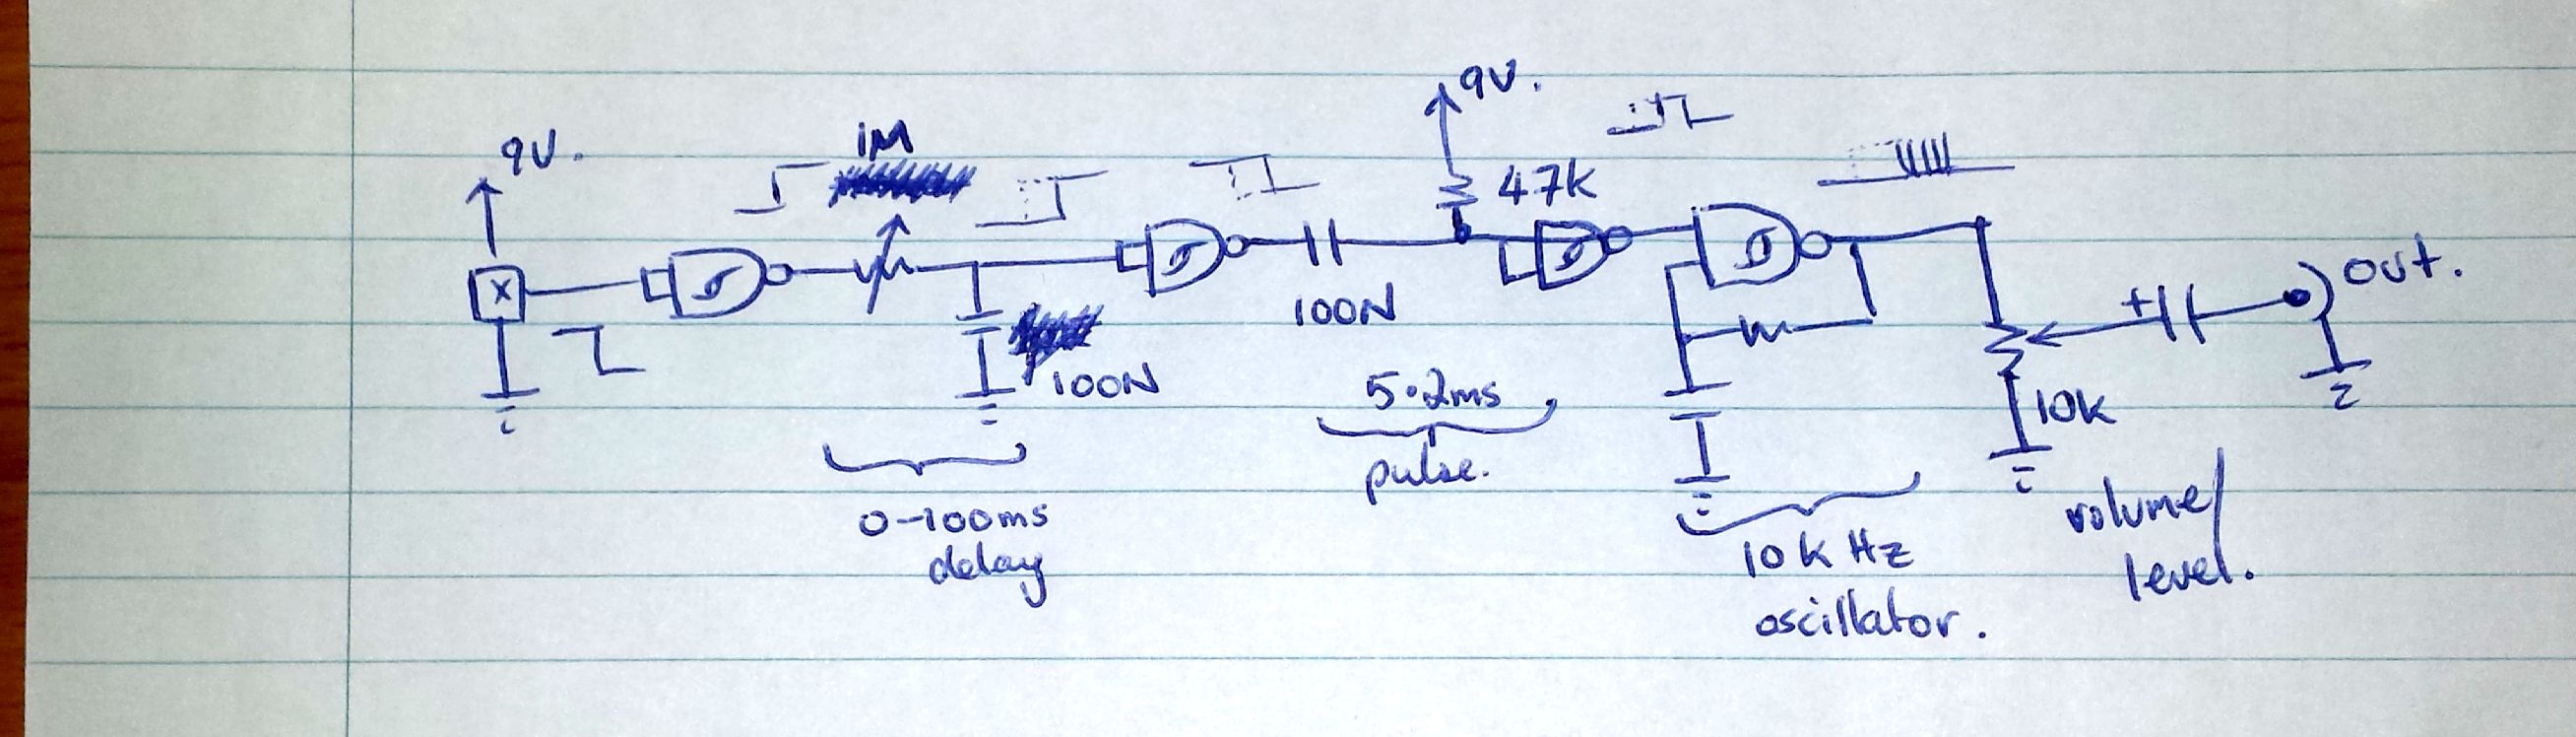 9V.
1M
9V.
47K
X
100N
100N
+
out.
5.2ms
pulse.
10K
0-100ms
delay
10K Hz
oscillator.
volume/
level.